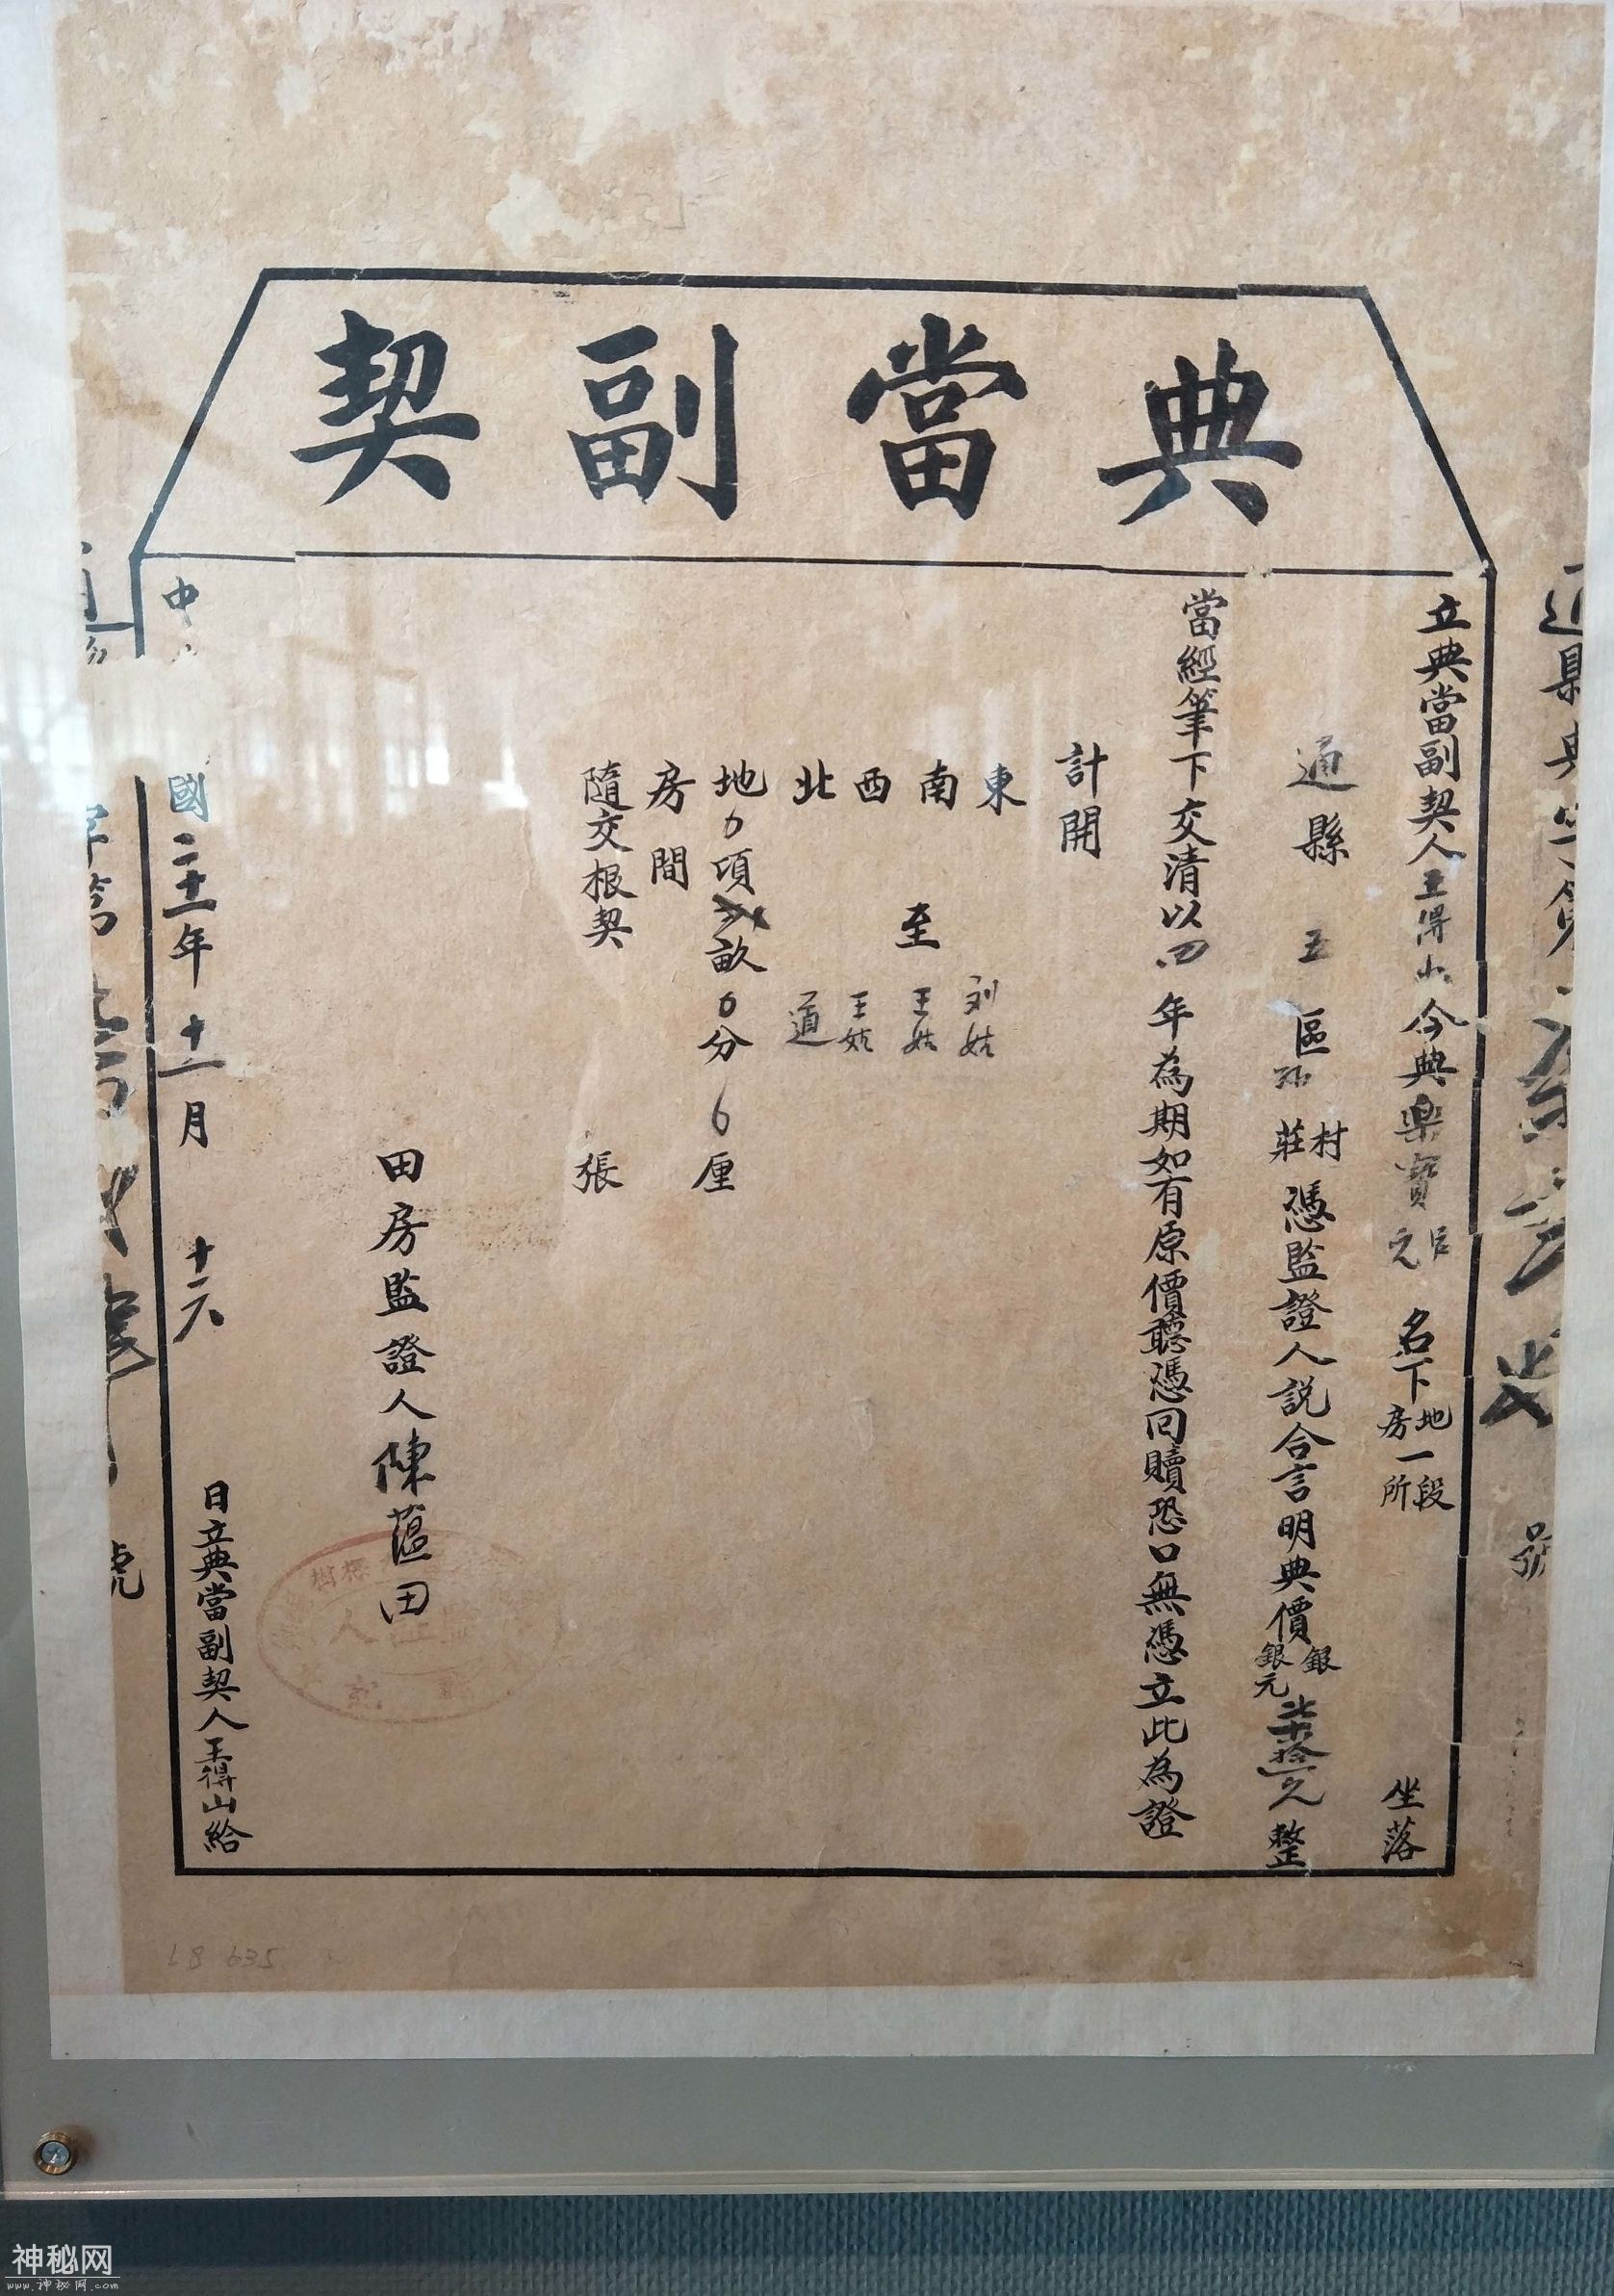 典當副契
立典當副契人王得山今典與寶元名下地房一段所坐落
通縣五區村莊憑監證人説合言明典價銀銀元整
當經筆下交清以四年為期如有原價聽憑回贖恐口無憑立此為證
計開
東劉姓
南至王姓
西王姓
北道
地0頃畝0分厘
房間
隨交根契張
田房監證人陳蕰田
中國二十一年十一月十六日立典當副契人王得山給
通縣典字第號
字第號
樹
人
神秘网
www.神秘网.com